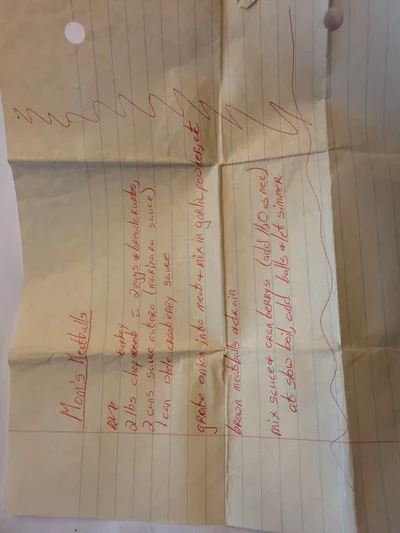 Mom's Meatballs
turkey
2 lbs chop meat = 2 eggs & breadcrumbs,
2 cans sauce arturo (marinara sauce)
1 can whole cranberry sauce
grate onion into meat & mix in garlic powder, etc
brown meatballs & drain
mix sauce & cranberrys (add H2O as nec)
at slow boil, add balls & let simmer